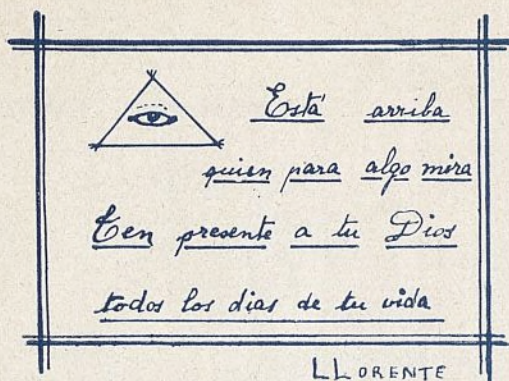 Está arriba
quien para algo mira
Ten presente a tu Dios
todos los dias de tu vida
LLORENTE